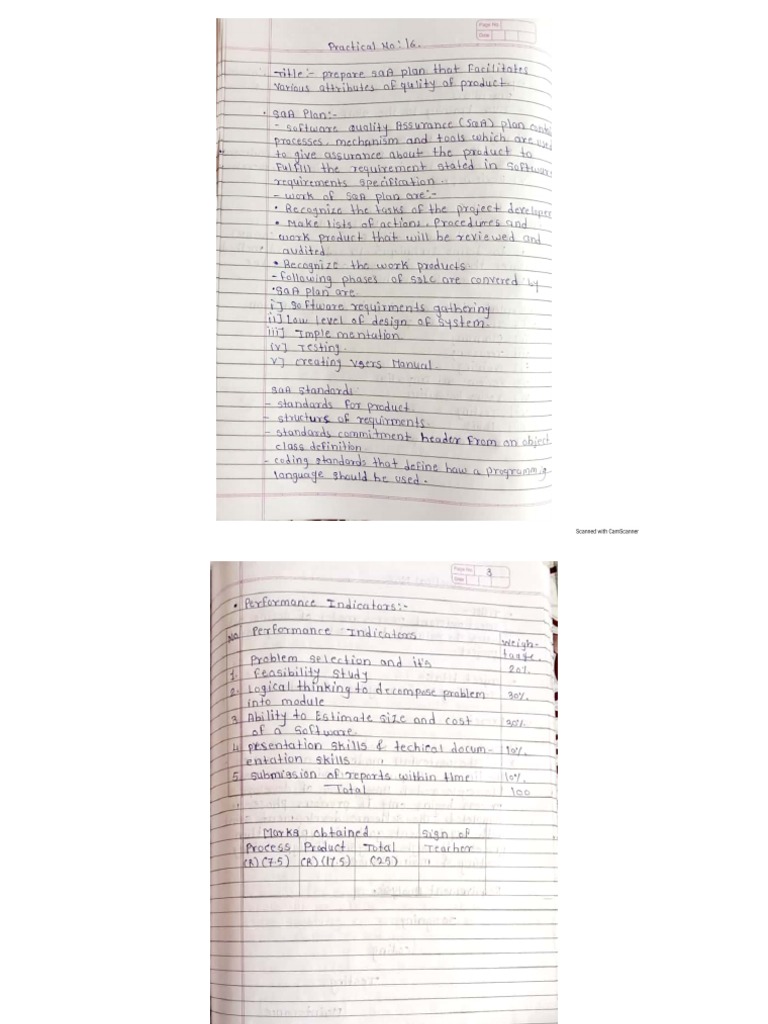 Page No.
Date
Practical No: 16.
Title:- prepare SQA plan that Facilitates
various attributes of qulity of product
• SQA Plan:-
- Software Quality Assurance (SQA) plan
processes, mechanism and tools which are used
to give assurance about the product to
Fulfill the requirement stated in Software
requirements specification.
- work of SQA plan are:-
• Recognize the tasks of the project developer
• Make lists of actions, Procedures and
work product that will be reviewed and
audited.
• Recognize the work products
- Following phases of SDLC are convered by
• SQA plan are
i] Software requirments gathering
ii] Low level of design of system.
iii] Imple mentation
iv] Testing.
v] creating Users Manual.
SQA Standards
- standards for product
- structurs of requirments.
- standards commitment header From an object
class definition.
- coding standards that define haw a programming
language should be used.
Scanned with CamScanner
Page No. 3
Date
• Performance Indicators:-
No Performance Indicators Weigh-
tange.
Problem selection and it's
1. Feasibility Study 20%
2. Logical thinking to decompose problem 30%.
into module
3 Ability to Estimate size and cost 30%
of a Software.
4. presentation skills & techical docum- 10%.
entation skills
5. submission of reports within time 10%.
Total 100
Marks obtained Sign of
Process Product Total Teacher
(R)(7.5) (R)(17.5) (25)